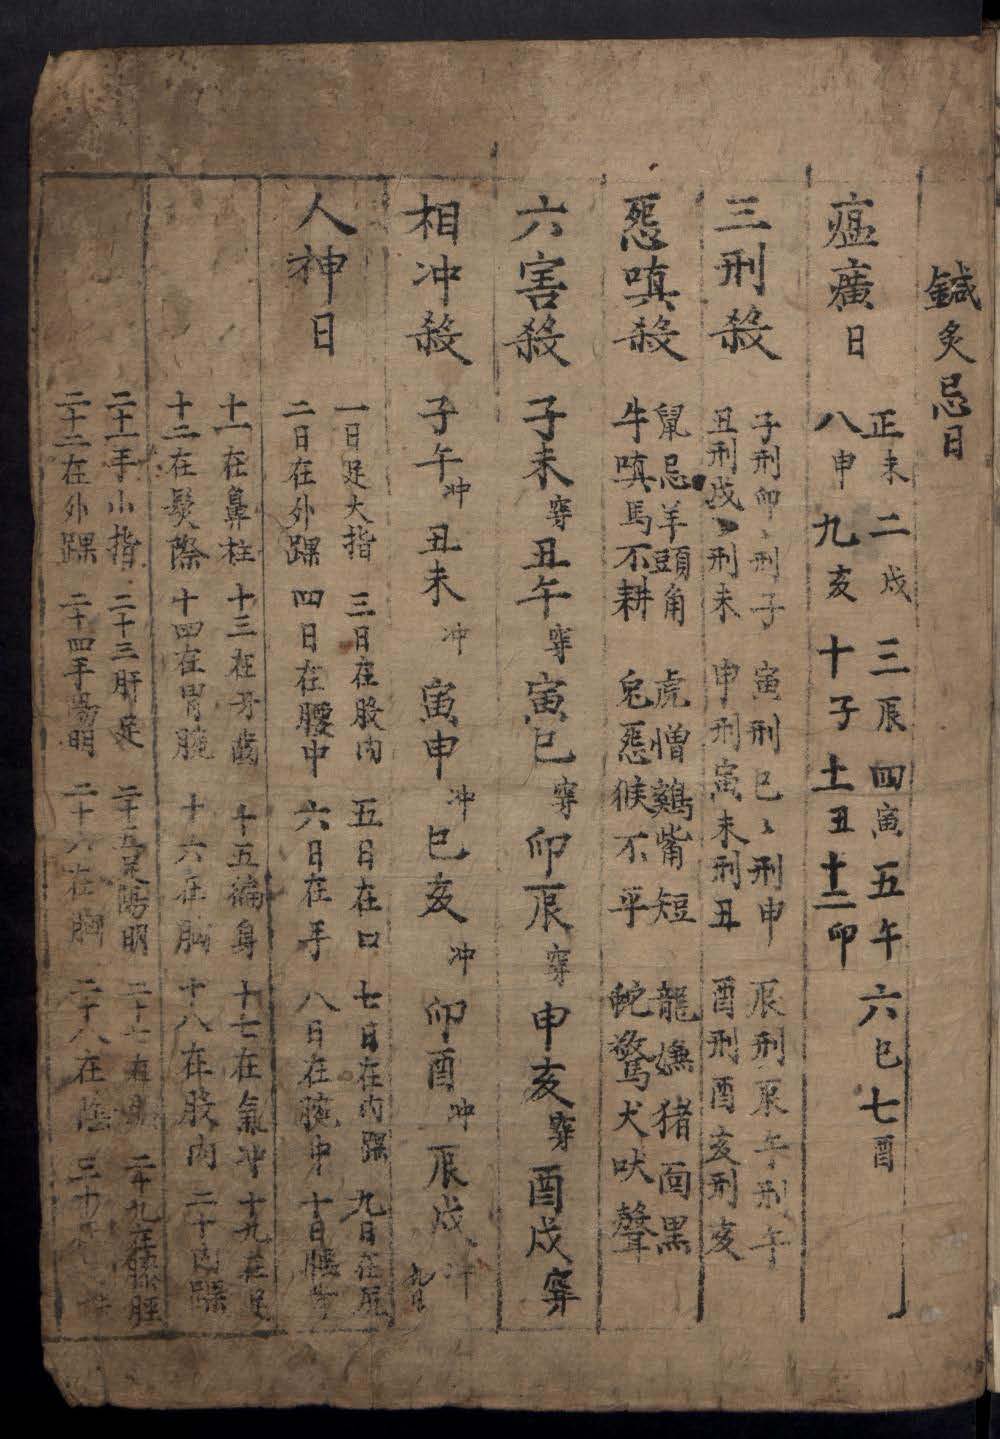 鍼灸忌日
瘟㾠日
正未 二戌 三辰 四寅 五午 六巳 七酉
八申 九亥 十子 土丑 十二卯
三刑殺
子刑卯〻刑子 寅刑巳〻刑申 辰刑辰午刑午
丑刑戌〻刑未 申刑寅未刑丑 酉刑酉亥刑亥
惡嗔殺
鼠忌羊頭角 虎憎鷄嘴短 龍嫌猪面黑
牛嗔馬不耕 兔惡猴不平 蛇驚犬吠聲
六害殺
子未穿丑午穿寅巳穿卯辰穿申亥穿酉戌穿
相冲殺
子午冲丑未冲寅申冲巳亥冲卯酉冲辰戌冲
人神日
一日足大指 三日在股內 五日在口 七日在內踝 九日在尻
二日在外踝 四日在腰中 六日在手 八日在腕中 十日腰
十一在鼻柱 十三在牙齒 十五徧身 十七在氣冲 十九在足
十二在髮際 十四在胃脘 十六在胸 十八在股內 二十內踝
二十一手小指 二十三肝足 二十五足陽明 二十七 二十九在膝脛
二十二在外踝 二十四手陽明 二十六在胸 二十八在陰 三十